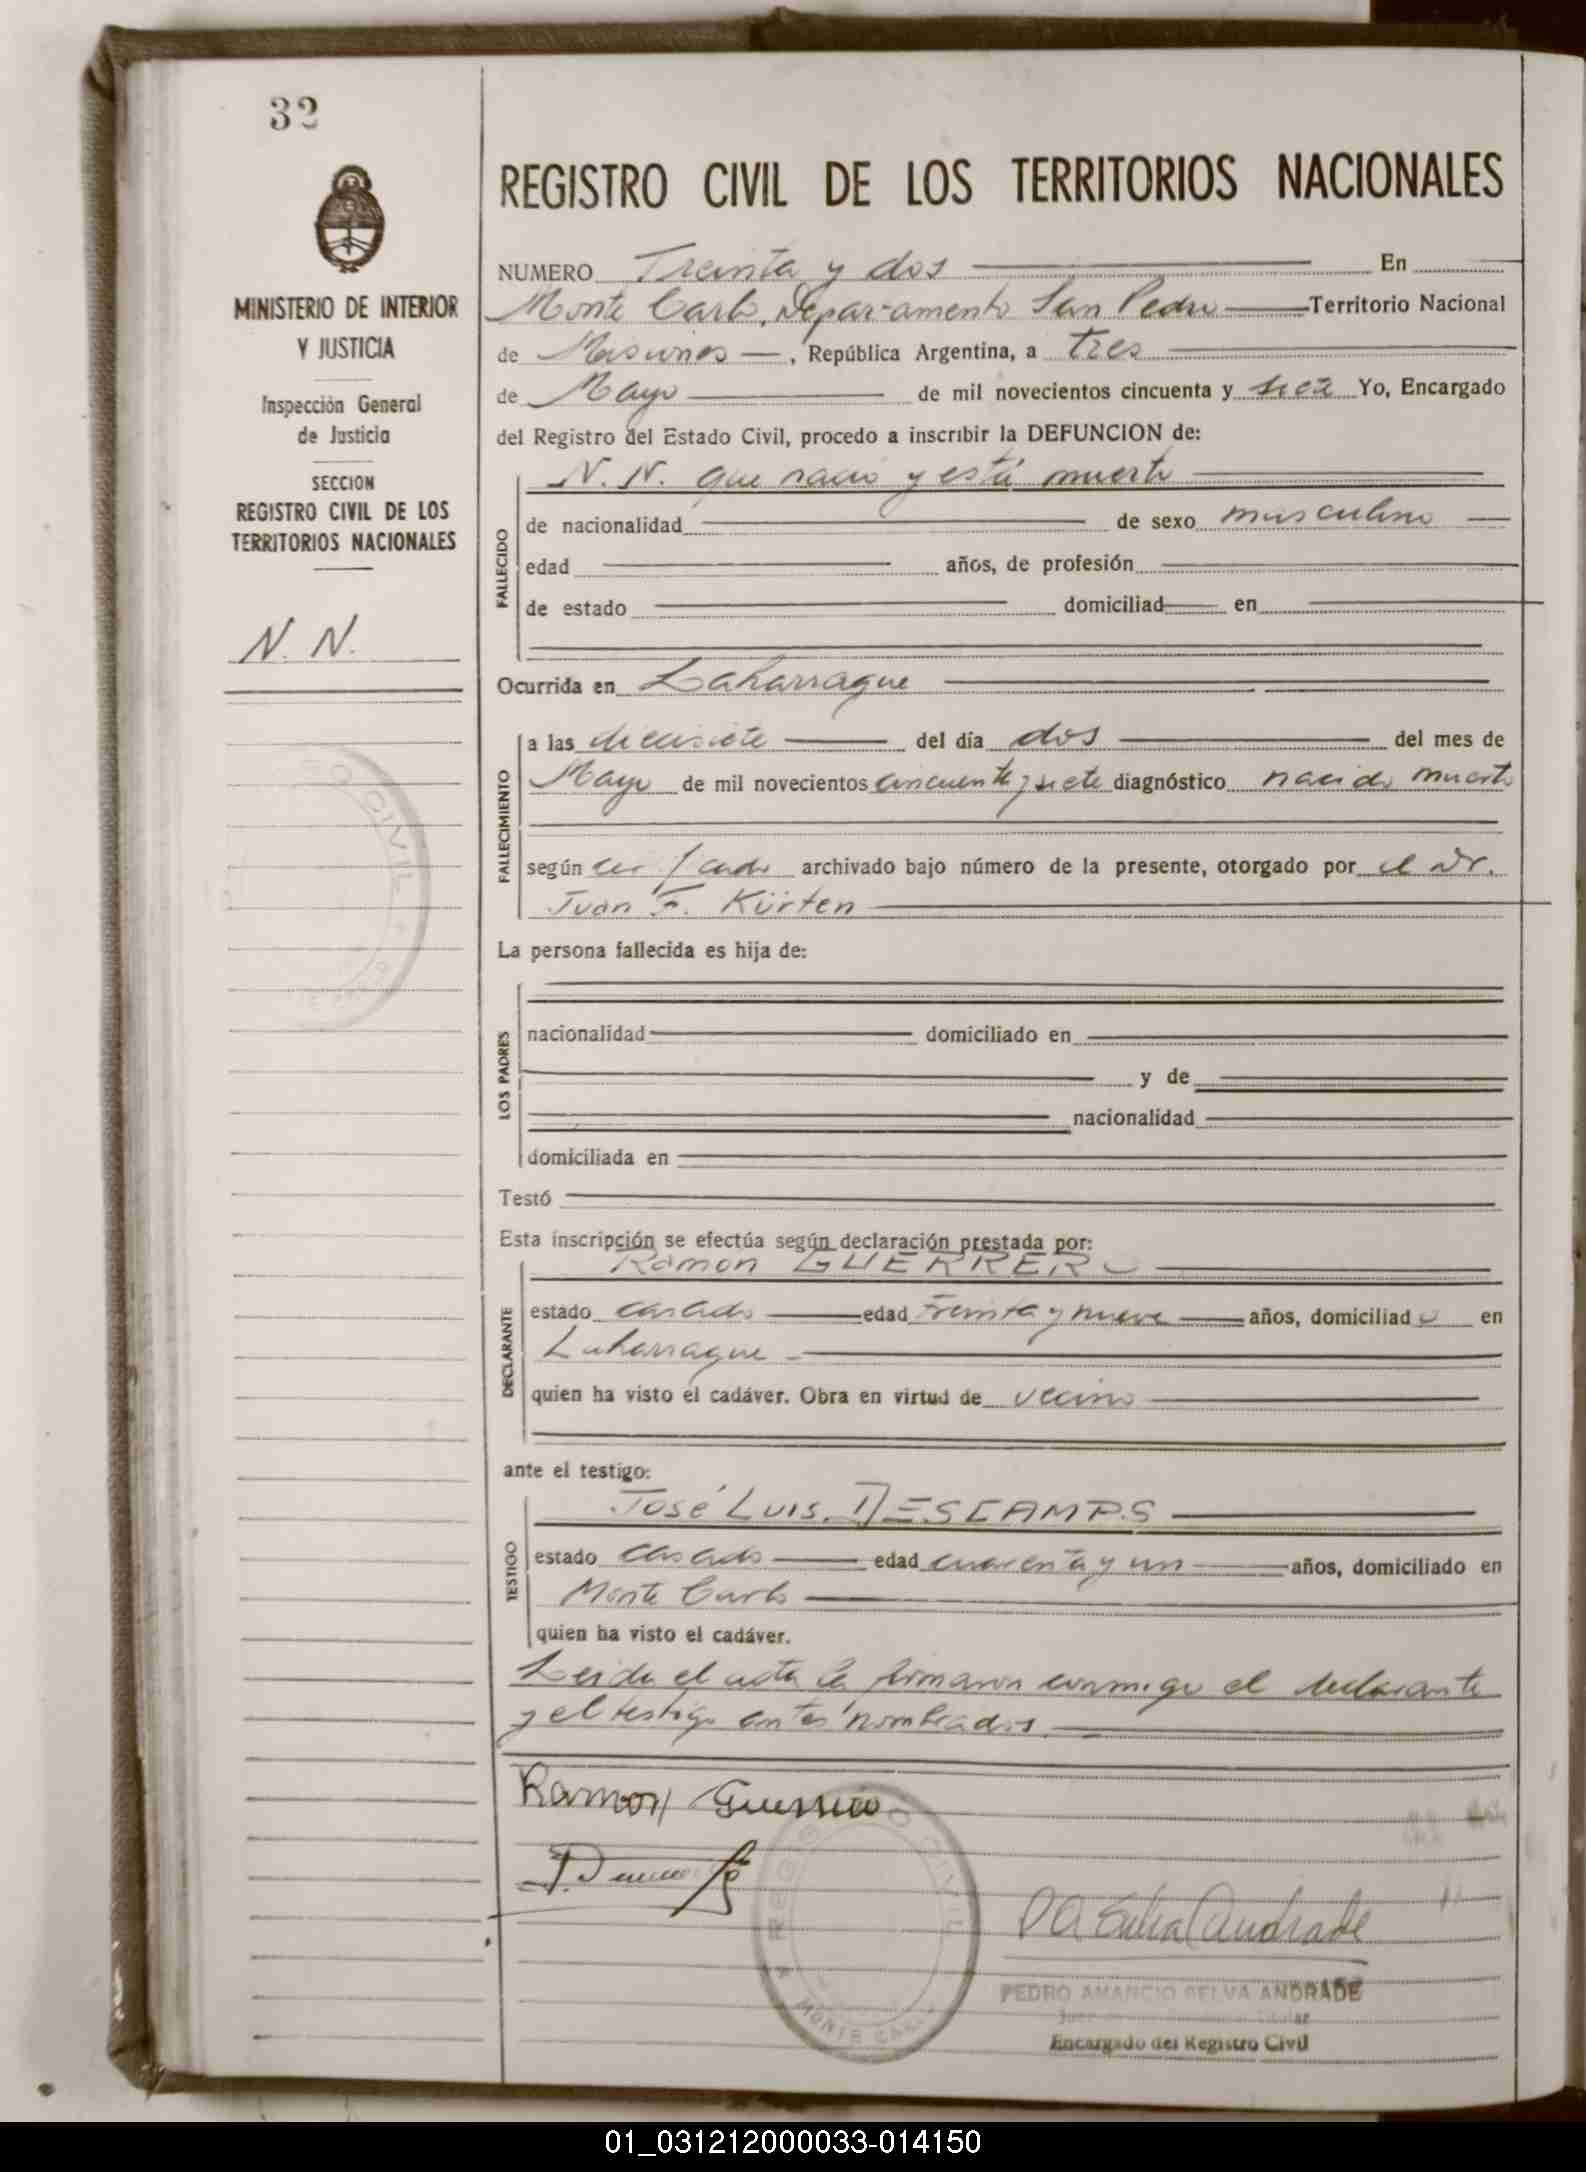 32
REGISTRO CIVIL DE LOS TERRITORIOS NACIONALES
MINISTERIO DE INTERIOR
Y JUSTICIA
Inspección General
de Justicia
SECCION
REGISTRO CIVIL DE LOS
TERRITORIOS NACIONALES
N. N.
NUMERO Treinta y dos En
Monte Carlo, Departamento San Pedro Territorio Nacional
de Misiones, República Argentina, a tres
de Mayo de mil novecientos cincuenta y siete Yo, Encargado
del Registro del Estado Civil, procedo a inscribir la DEFUNCION de:
N. N. que nació y está muerto
FALLECIDO
de nacionalidad de sexo masculino
edad años, de profesión
de estado domiciliad en
Ocurrida en Laharrague
FALLECIMIENTO
a las diecisiete del día dos del mes de
Mayo de mil novecientos cincuenta y siete diagnóstico nacido muerto
según certificado archivado bajo número de la presente, otorgado por el Dr.
Juan F. Kürten
La persona fallecida es hija de:
LOS PADRES
nacionalidad domiciliado en
y de
nacionalidad
domiciliada en
Testó
Esta inscripción se efectúa según declaración prestada por:
Ramon GUERRERO
DECLARANTE
estado casado edad treinta y nueve años, domiciliado en
Laharrague
quien ha visto el cadáver. Obra en virtud de vecino
ante el testigo:
José Luis DESCAMPS
TESTIGO
estado casado edad cuarenta y un años, domiciliado en
Monte Carlo
quien ha visto el cadáver.
Leida el acta la firmaron conmigo el declarante
y el testigo antes nombrados.
Ramon Guerrero
REGISTRO CIVIL
MONTE CARLO
PEDRO AMANCIO SELVA ANDRADE
Encargado del Registro Civil
01_031212000033-014150